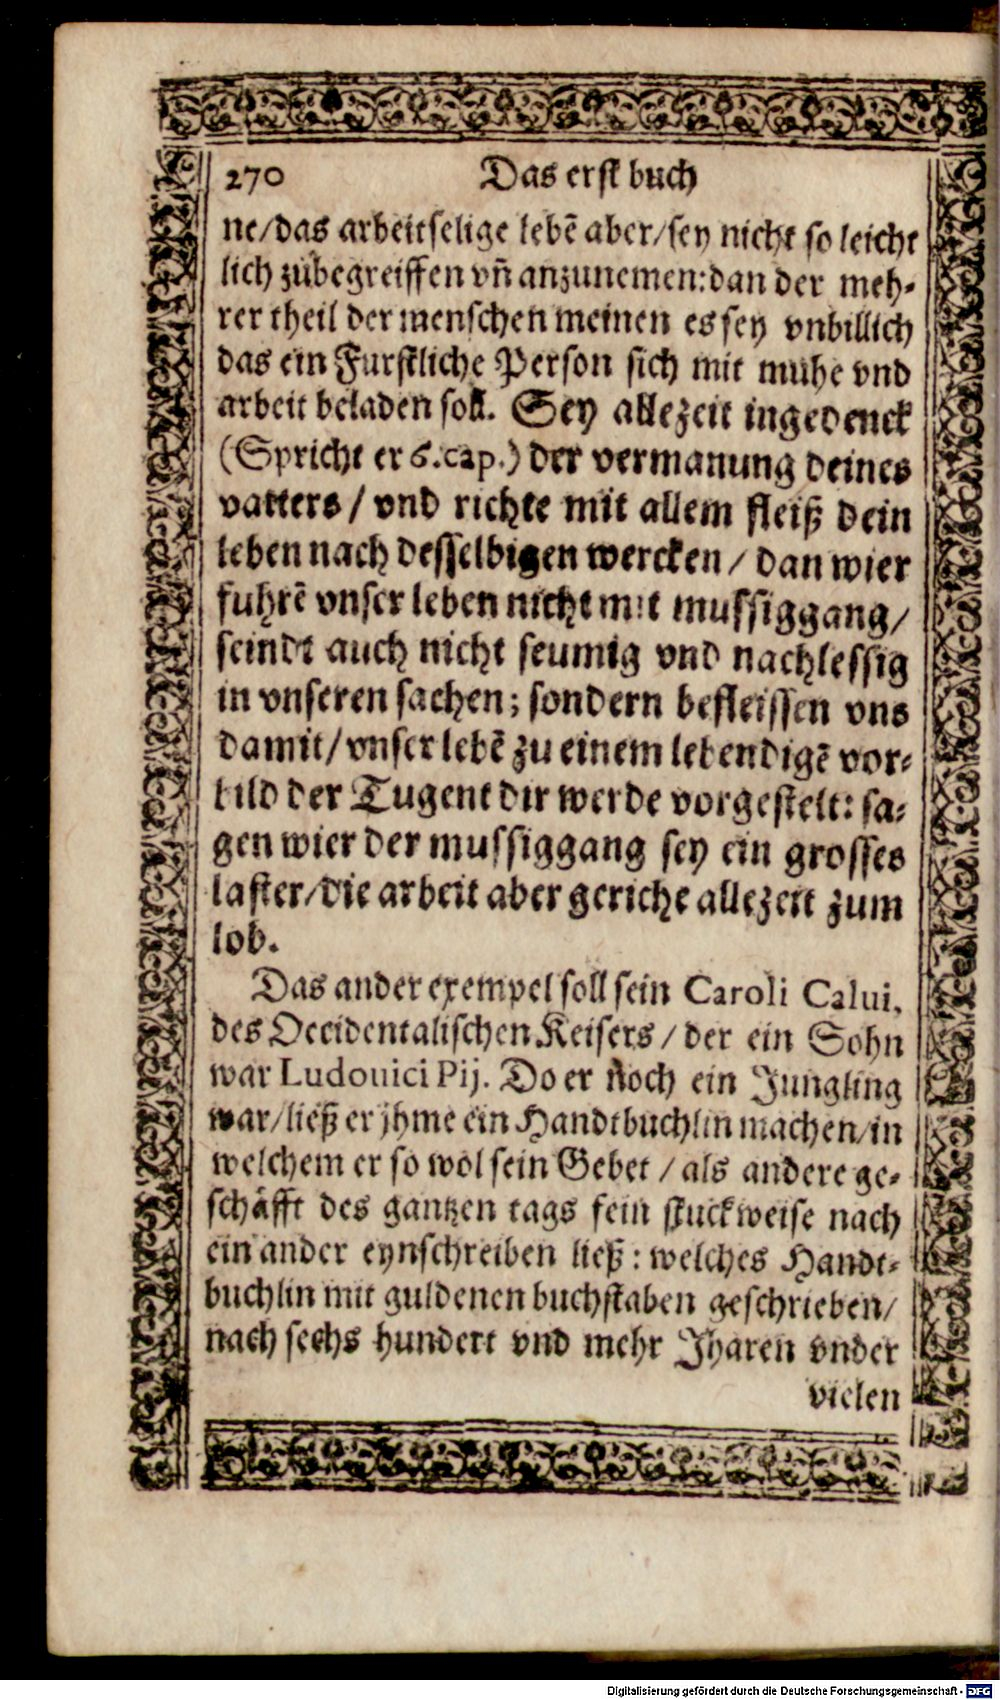 270 Das erst buch
ne/das arbeitselige lebẽ aber/sey nicht so leicht
lich zubegreiffen vñ anzunemen: dan der meh-
rer theil der menschen meinen es sey vnbillich
das ein Furstliche Person sich mit muhe vnd
arbeit beladen soll. Sey allezeit ingedenck
(Spricht er 6. cap.) der vermanung deines
vatters / vnd richte mit allem fleiß dein
leben nach desselbigen wercken / dan wier
fuhrẽ vnser leben nicht mit mussiggang/
seindt auch nicht seumig vnd nachlessig
in vnseren sachen; sondern befleissen vns
damit/vnser lebẽ zu einem lebendigẽ vor-
bild der Tugent dir werde vorgestelt: sa-
gen wier der mussiggang sey ein grosses
laster/die arbeit aber geriche allezeit zum
lob.
Das ander exempel soll sein Caroli Calui,
des Occidentalischen Keisers / der ein Sohn
war Ludouici Pij. Do er noch ein Jungling
war/ließ er jhme ein Handtbuchlin machen/in
welchem er so wol sein Gebet / als andere ge-
schäfft des gantzen tags fein stuckweise nach
ein ander eynschreiben ließ: welches Handt-
buchlin mit guldenen buchstaben geschrieben/
nach sechs hundert vnd mehr Jharen vnder
vielen
Digitalisierung gefördert durch die Deutsche Forschungsgemeinschaft - DFG